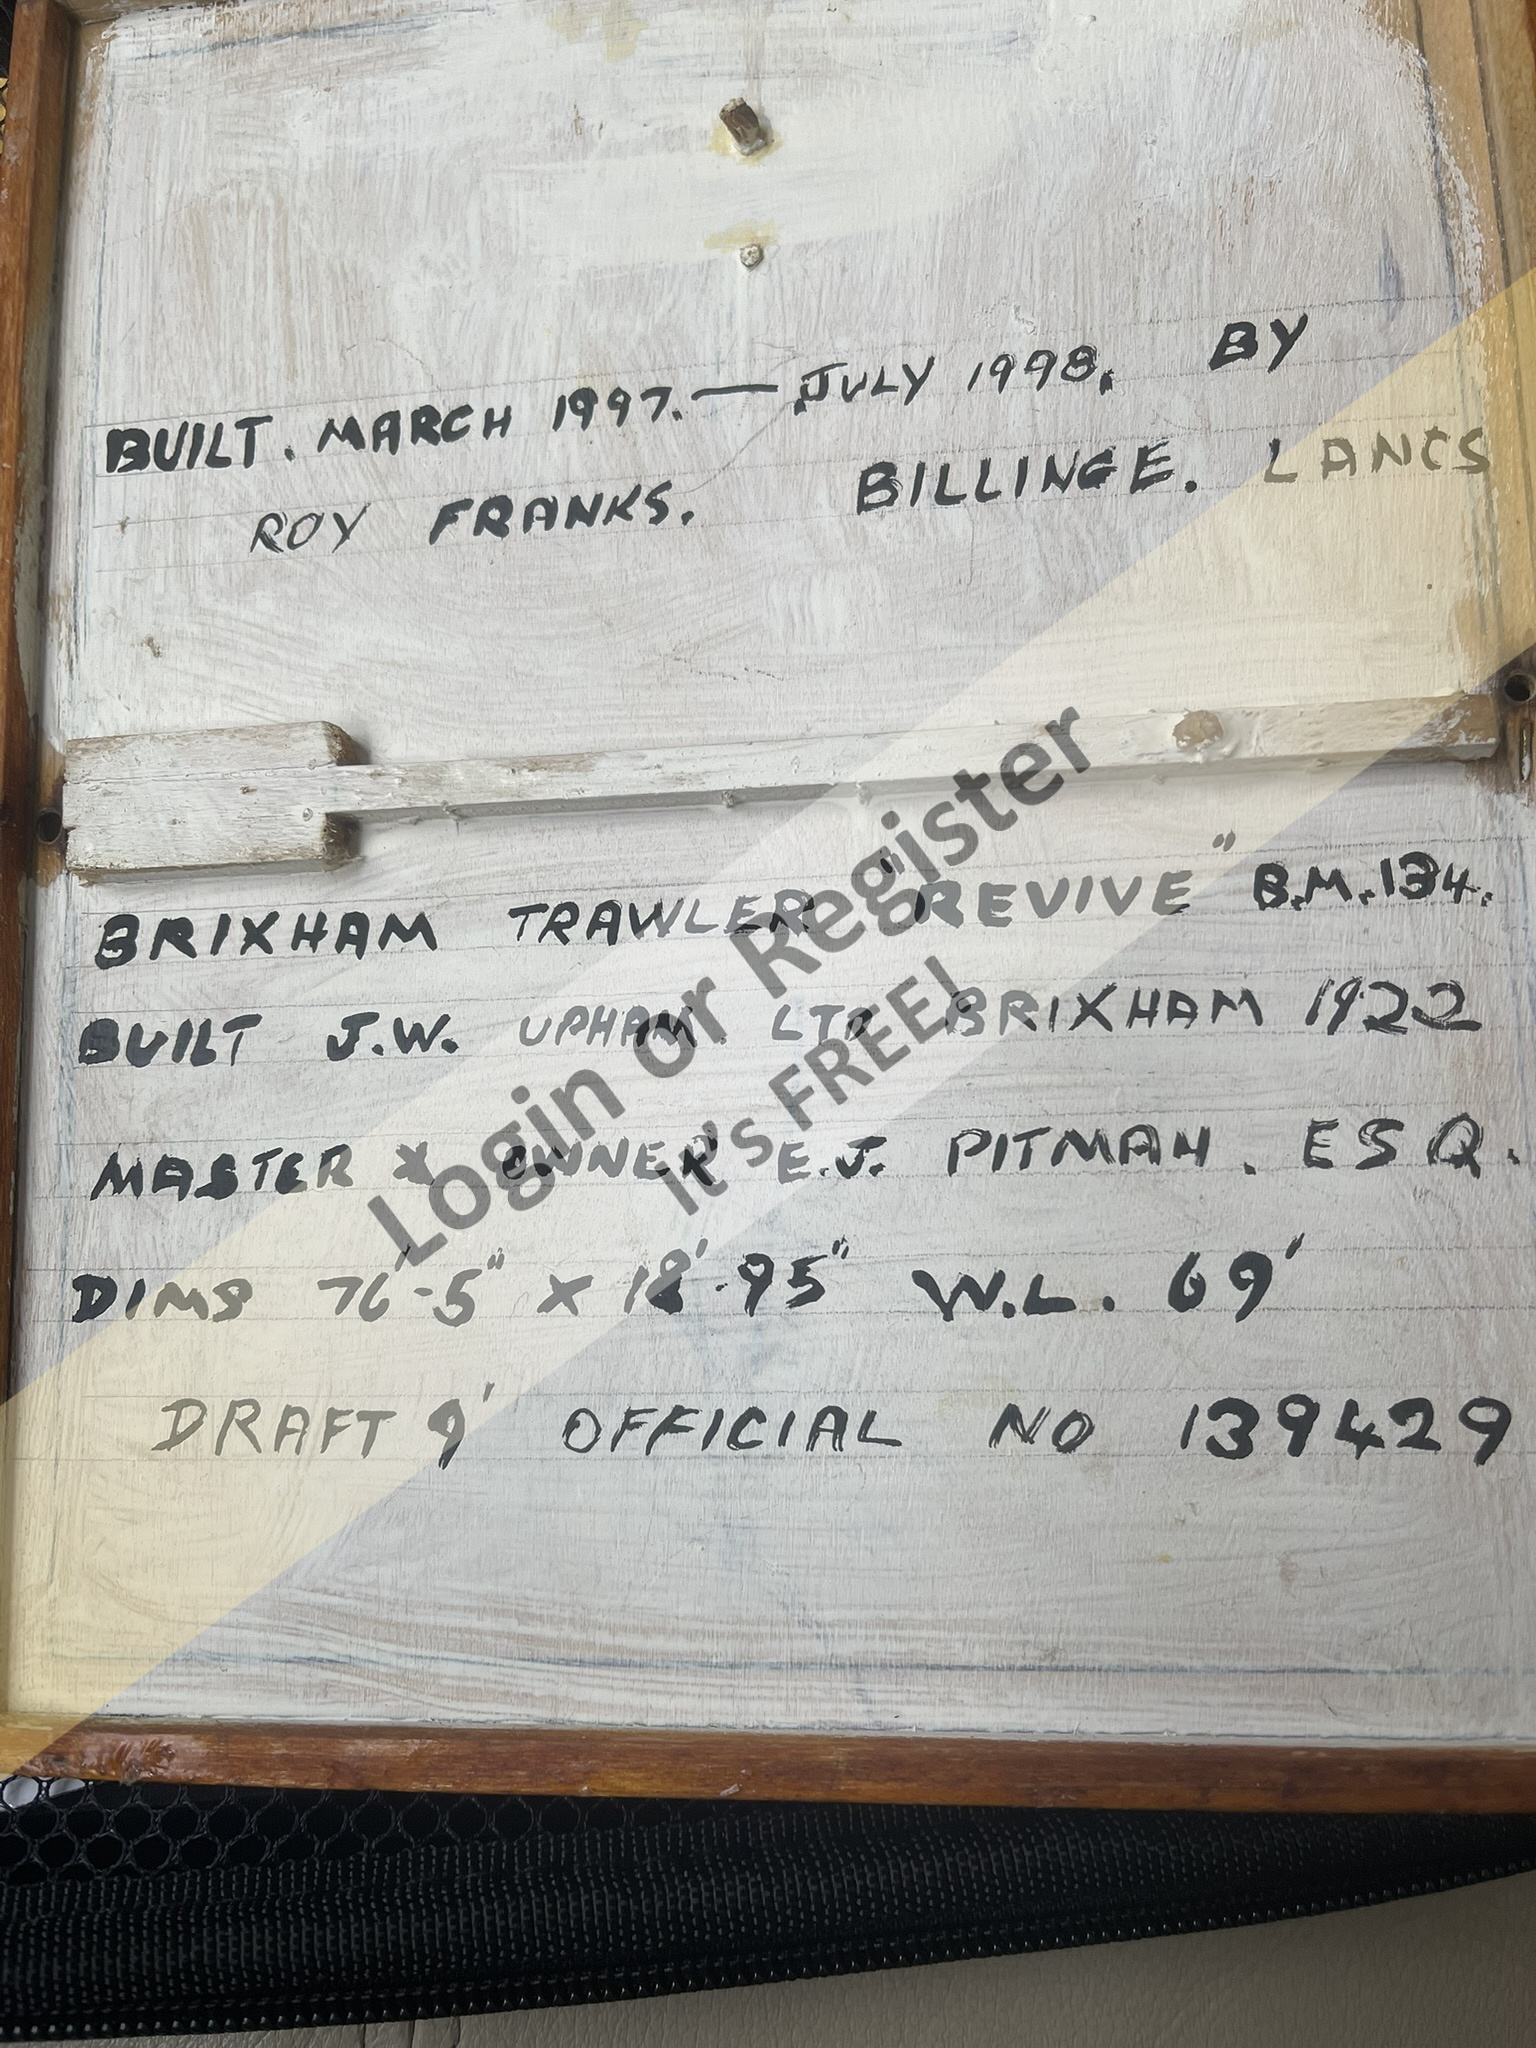 BUILT. MARCH 1997. — JULY 1998. BY
ROY FRANKS. BILLINGE. LANCS
BRIXHAM TRAWLER "REVIVE" B.M.134.
BUILT J.W. UPHAM. LTD BRIXHAM 1922
MASTER & OWNER E.J. PITMAN. ESQ.
DIMS 76'-5" X 18'.95" W.L. 69'
DRAFT 9' OFFICIAL NO 139429
Login or Register
it's FREE!